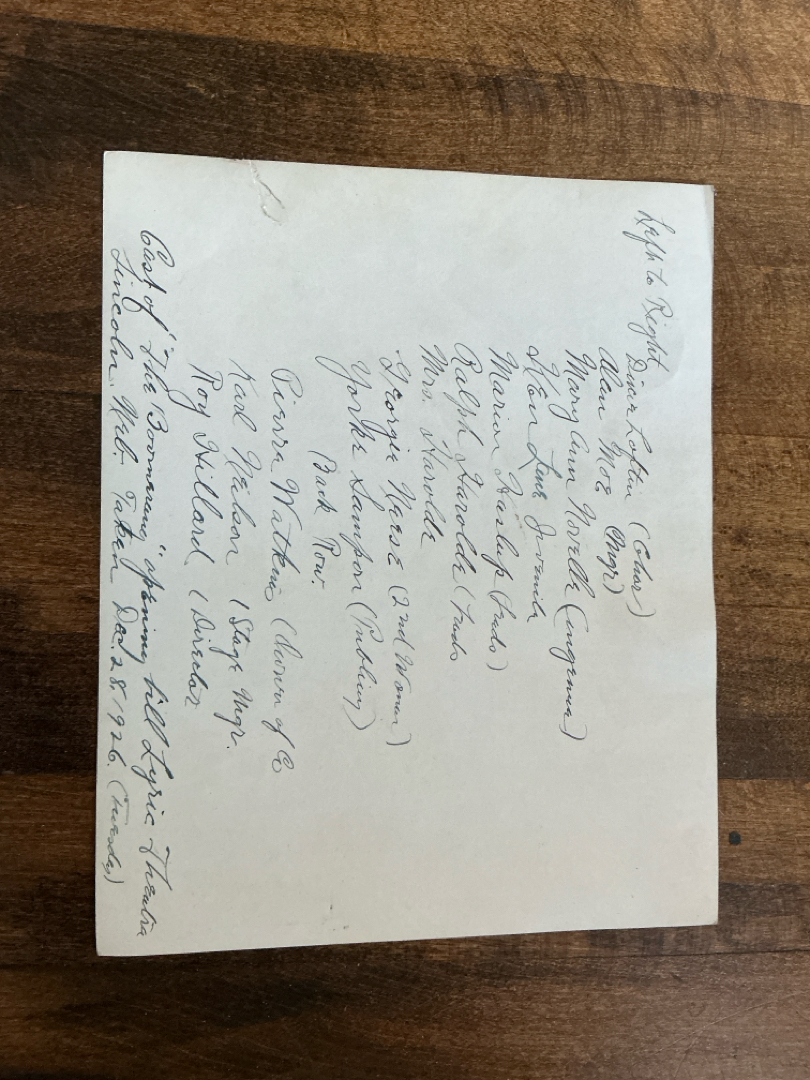 Left to Right
Dinar Loftin (Char)
Alan Moe (Mgr)
Mary Ann Novelle (ingenue)
Ken Lane Juvenile
Marion Haslup (Leads)
Ralph Harolde (Leads
Mrs. Harolde
Georgia Neese (2nd Woman)
Yorke Sampson (Publicity)
Back Row.
Pierre Watkin (Owner of Co
Karl Nelson (Stage Mgr.
Roy Hillard (Director
Cast of "The Boomerang" opening bill Lyric Theatre
Lincoln, Neb. Taken Dec. 28, 1926. (Tuesday)